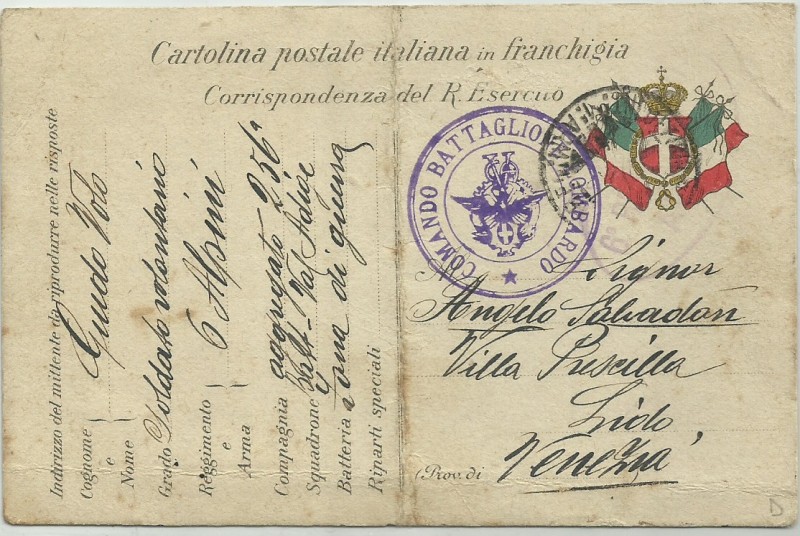 Cartolina postale italiana in franchigia
Corrispondenza del R. Esercito
COMANDO BATTAGLIONE LOMBARDO
Signor
Angelo Salvadori
Villa Priscilla
Lido
(Prov. di Venezia
Indirizzo del mittente da riprodurre nelle risposte
Cognome e Nome Guido Volo
Grado Soldato volontario
Reggimento e Arma 6 Alpini
Compagnia aggregato 256ª
Squadrone Batt. Val Adige
Batteria zona di guerra
Riparti speciali
D